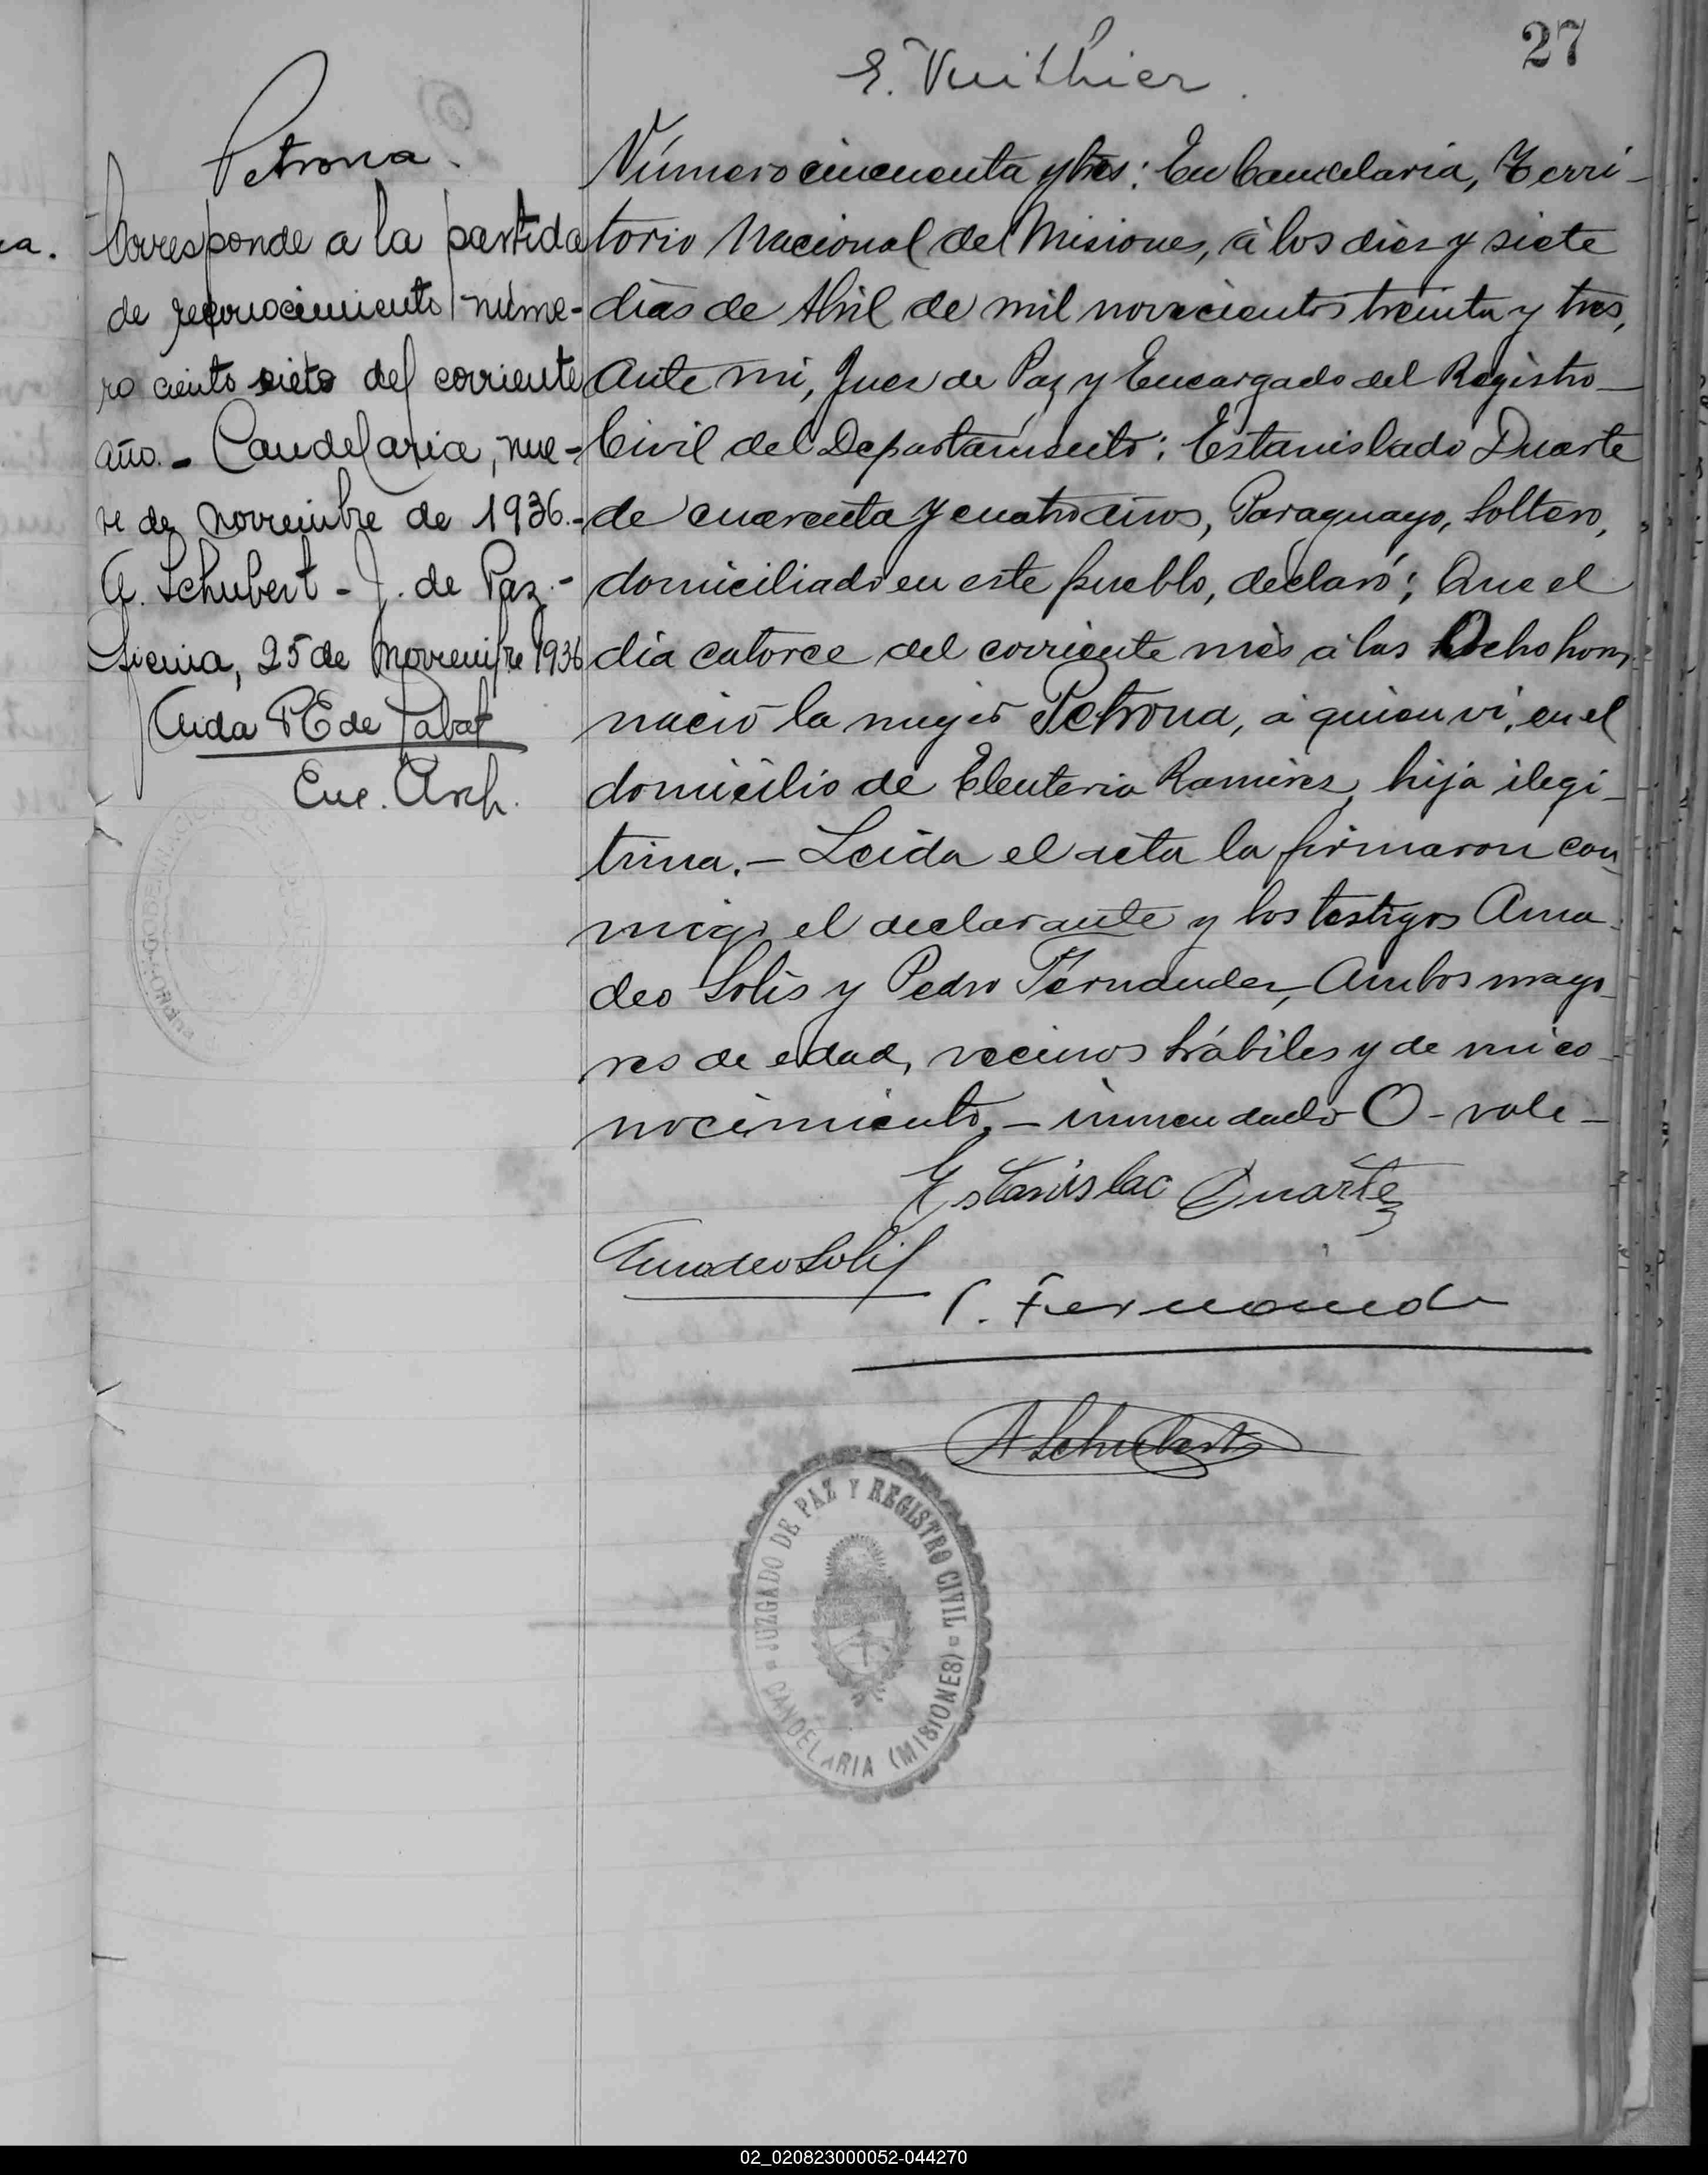 27
E. Vuithier
Petrona.
Corresponde a la partida
de reconocimiento núme-
ro ciento siete del corriente
año. - Candelaria, nue-
ve de noviembre de 1936.-
A. Schubert - J. de Paz.-
25 de Noviembre 1936
Aida de
Enc. Arch.
Número cincuenta y tres: En Candelaria, Terri-
torio Nacional de Misiones, á los diez y siete
días de Abril de mil novecientos treinta y tres,
Ante mi, Juez de Paz y Encargado del Registro
Civil del Departamento: Estanislado Duarte
de cuarenta y cuatro años, Paraguayo, Soltero,
domiciliado en este pueblo, declaró; Que el
día catorce del corriente mès á las Ocho horas
nació la mujer Petrona, á quien vi, en el
domicilio de Eleuteria Ramirez, hija ilegi-
tima. - Leida el acta la firmaron con
migo el declarante y los testigos Ama
deo Solis y Pedro Fernandez, Ambos mayo
res de edad, vecinos hábiles y de mi co-
nocimiento. - inmendado O - vale -
Estanislac Duarte
Amadeo Solis
P. Fernande
A Schubert
JUZGADO DE PAZ Y REGISTRO CIVIL
CANDELARIA (MISIONES)
02_020823000052-044270